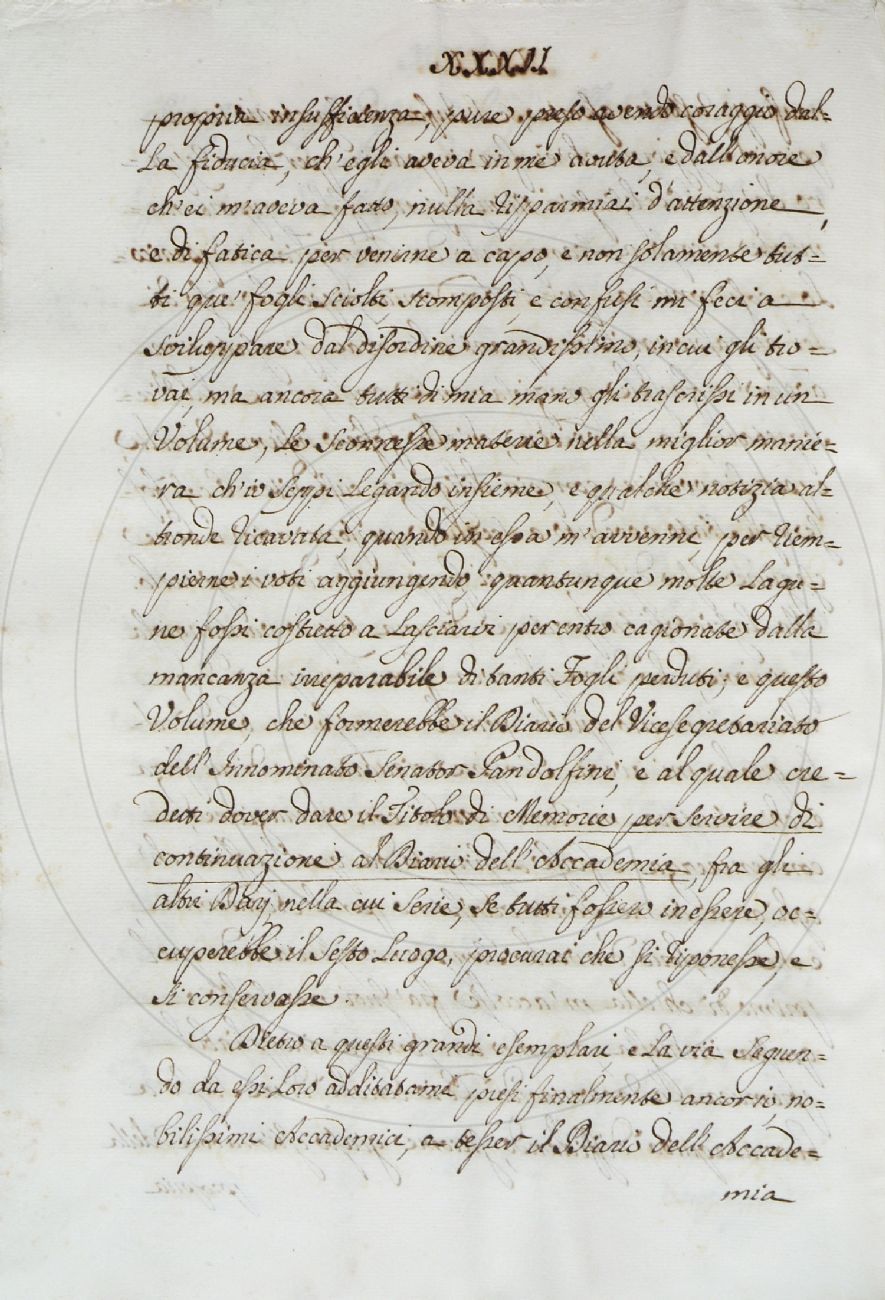 XXXII
propria insufficienza, pure preso avendo coraggio dal=
la fiducia, ch'egli aveva in me avuta, e dall'onore
ch'ei m'aveva fatto, nulla risparmiai d'attenzione,
e di fatica per venirne a capo, e non solamente tut=
ti que' fogli sciolti, scomposti, e confusi mi feci a
sviluppare dal disordine grandissimo, in cui gli tro=
vai, ma ancora tutti di mia mano gli trascrissi in un
Volume, le sconnesse materie nella miglior manie=
ra ch'io seppi legando insieme, e qualche notizia al=
tronde ricavata, quando in essa m'avvenni, per riem=
pierne i voti aggiungendo, quantunque molte lagu=
ne fossi costretto a lasciarvi per entro cagionate dalla
mancanza irreparabile di tanti Fogli perduti; e questo
Volume, che formerebbe il Diario del Vicesegretariato
dell'Innominato Senator Pandolfini, e al quale cre=
detti dover dare il Titolo di Memorie per servire di
continuazione al Diario dell'Accademia, fra gli
altri Diarj, nella cui serie, se tutti fossero in essere, oc=
cuperebbe il sesto luogo, procurai che si riponesse, e
si conservasse.
Dietro a questi grandi esemplari, e la via seguen=
do da essi loro additatami presi finalmente ancor io, no=
bilissimi Accademici, a tesser il Diario dell'Accade=
mia